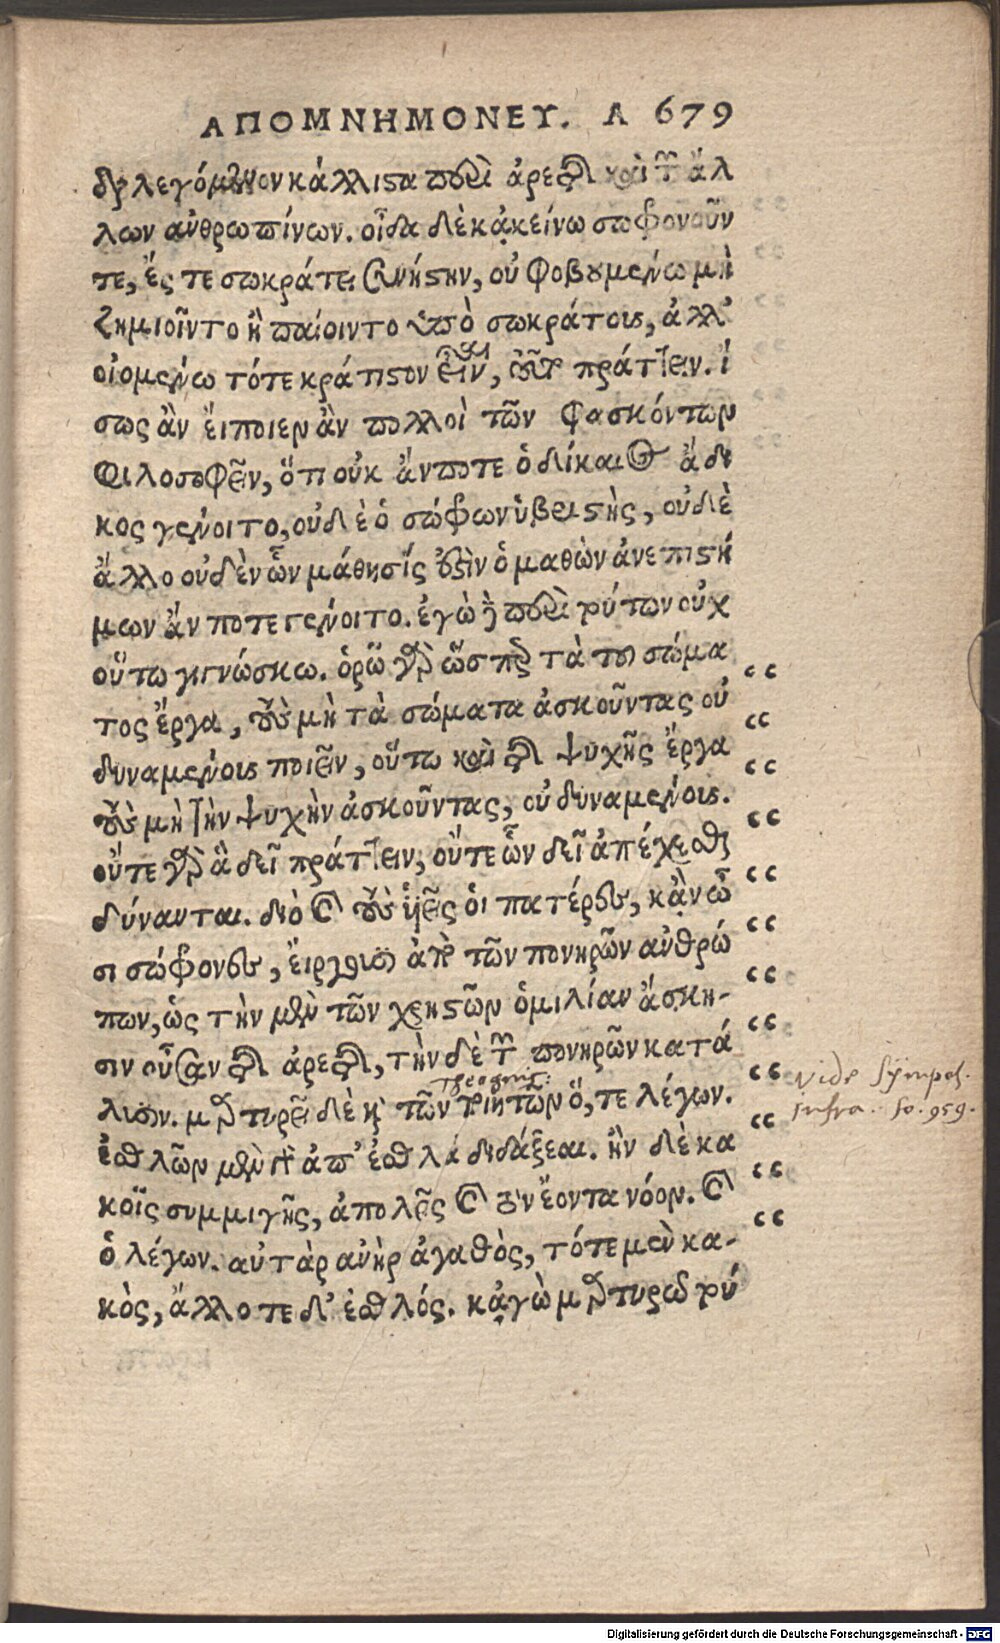 ΑΠΟΜΝΗΜΟΝΕΥ. Α 679
διαλεγόμενον κάλλιστα περὶ ἀρετῆς καὶ τῶν ἄλ
λων ἀνθρωπίνων. οἶδα δὲ κᾀκείνω σωφρονοῦν
τε, ἔς τε σωκράτει συνήστην, οὐ φοβουμένω μὴ
ζημιοῖντο ἢ παίοιντο ὑπὸ σωκράτους, ἀλλ'
οἰομένω τότε κράτιστον εἶναι, τοῦτο πράττειν. ἴ
σως ἂν εἴποιεν ἂν πολλοὶ τῶν φασκόντων
φιλοσοφεῖν, ὅτι οὐκ ἄν ποτε ὁ δίκαιος ἄδι
κος γένοιτο, οὐδὲ ὁ σώφρων ὑβριστὴς, οὐδὲ
ἄλλο οὐδὲν ὧν μάθησίς ἐστιν ὁ μαθὼν ἀνεπιστή
μων ἄν ποτε γένοιτο. ἐγὼ δὲ περὶ τούτων οὐχ
οὕτω γιγνώσκω. ὁρῶ γὰρ ὥσπερ τὰ τοῦ σώμα
τος ἔργα, τοὺς μὴ τὰ σώματα ἀσκοῦντας οὐ
δυναμένους ποιεῖν, οὕτω καὶ τῆς ψυχῆς ἔργα
τοὺς μὴ τὴν ψυχὴν ἀσκοῦντας, οὐ δυναμένους.
οὔτε γὰρ ἃ δεῖ πράττειν, οὔτε ὧν δεῖ ἀπέχεσθαι
δύνανται. διὸ καὶ τοὺς ὑεῖς οἱ πατέρες, κᾂν ὦ
σι σώφρονες, εἴργουσιν ἀπὸ τῶν πονηρῶν ἀνθρώ
πων, ὡς τὴν μὲν τῶν χρηστῶν ὁμιλίαν ἄσκη-
σιν οὖσαν τῆς ἀρετῆς, τὴν δὲ τῶν πονηρῶν κατά
λυσιν. μαρτυρεῖ δὲ καὶ τῶν ποιητῶν ὅ, τε λέγων.
ἐσθλῶν μὲν γὰρ ἀπ' ἐσθλὰ διδάξεαι. ἢν δὲ κα
κοῖς συμμιγῇς, ἀπολεῖς καὶ τὸν ἔοντα νόον. καὶ
ὁ λέγων. αὐτὰρ ἀνὴρ ἀγαθὸς, τότε μὲν κα-
κὸς, ἄλλοτε δ' ἐσθλός. κᾀγὼ μαρτυρῶ τού
vide Sympos.
infra. fo. 959.
Digitalisierung gefördert durch die Deutsche Forschungsgemeinschaft - DFG